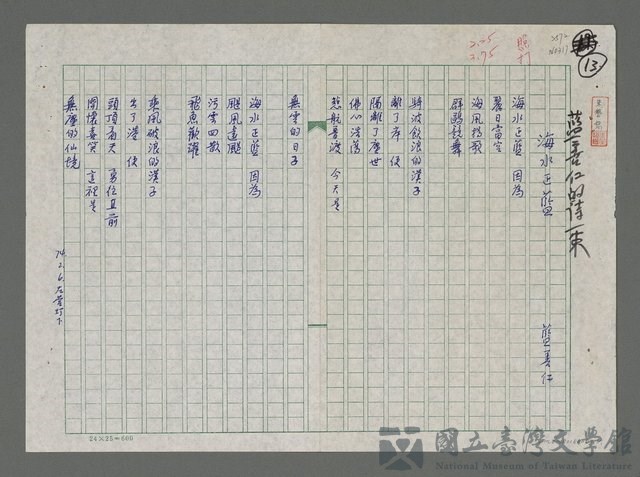 13
藍善仁的詩一束
海水正藍
藍善仁
海水正藍 因為
麗日當空
海風揚歌
群鷗競舞
騎波飲浪的漢子
離了岸 便
隔離了塵世
佛心浩蕩
慈航普渡 今天是
無雲的日子
海水正藍 因為
颶風遠颺
污雲四散
飛魚歡躍
乘風破浪的漢子
出了港 便
頭頂青天 勇往直前
開懷喜笑 這裡是
無塵的仙境
74.2.6.左營燈下
24×25=600
國立臺灣文學館
National Museum of Taiwan Literature